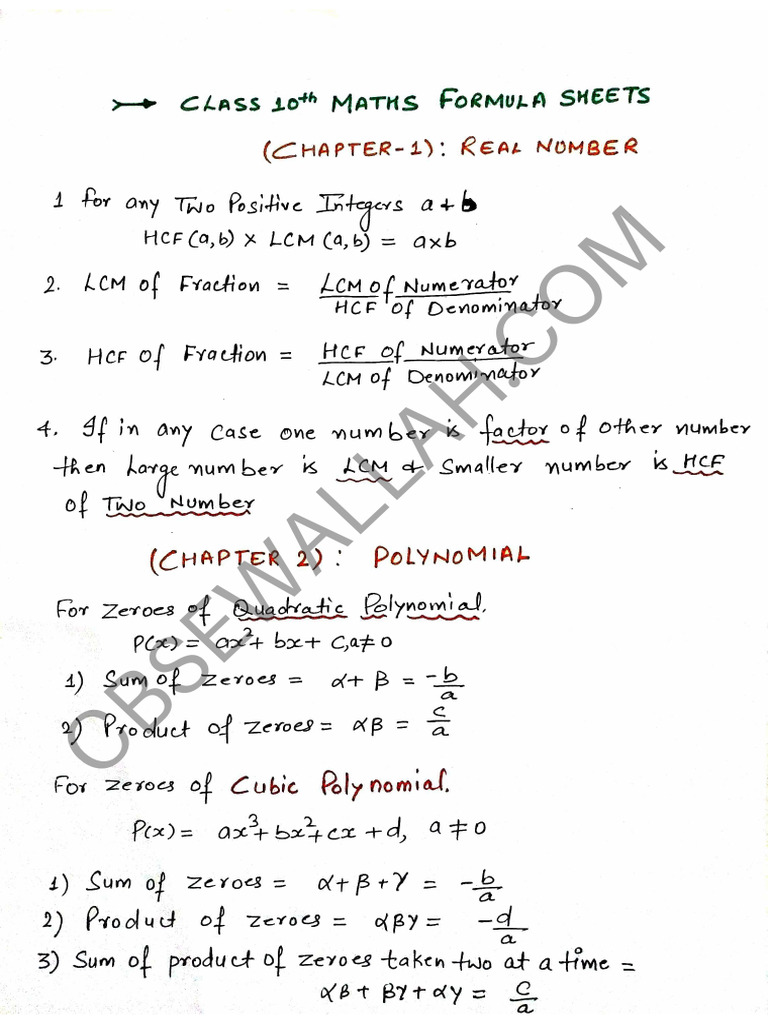 → CLASS 10th MATHS FORMULA SHEETS
(CHAPTER-1): REAL NUMBER
1 for any Two Positive Integers a & b
HCF(a,b) × LCM(a,b) = a×b
2. LCM of Fraction = LCM of Numerator / HCF of Denominator
3. HCF of Fraction = HCF of Numerator / LCM of Denominator
4. If in any case one number is factor of other number
then Large number is LCM & Smaller number is HCF
of Two Number
(CHAPTER 2): POLYNOMIAL
For zeroes of Quadratic Polynomial.
P(x) = ax²+ bx + C, a≠0
1) Sum of zeroes = α+ β = -b/a
2) Product of zeroes = αβ = c/a
For zeroes of Cubic Polynomial.
P(x) = ax³+bx²+cx +d, a≠0
1) Sum of zeroes = α+β+γ = -b/a
2) Product of zeroes = αβγ = -d/a
3) Sum of product of zeroes taken two at a time =
αβ+ βγ+αγ = c/a
CBSEWALLAH.COM